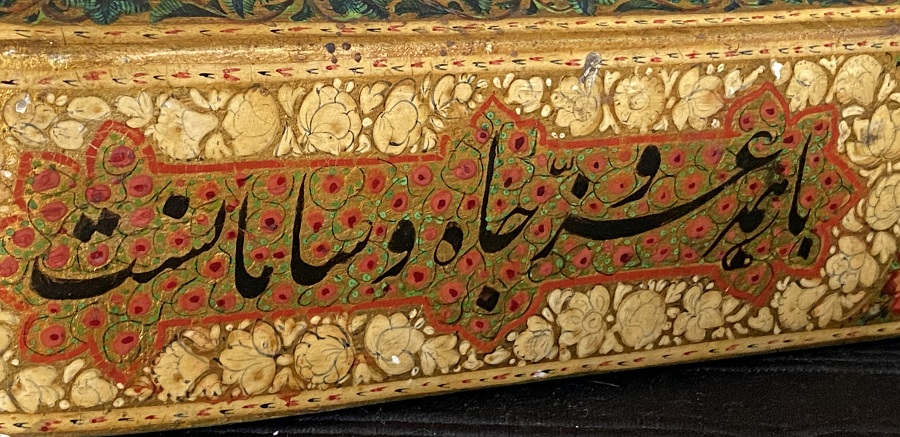 با همه عزّ و جاه و سامانست